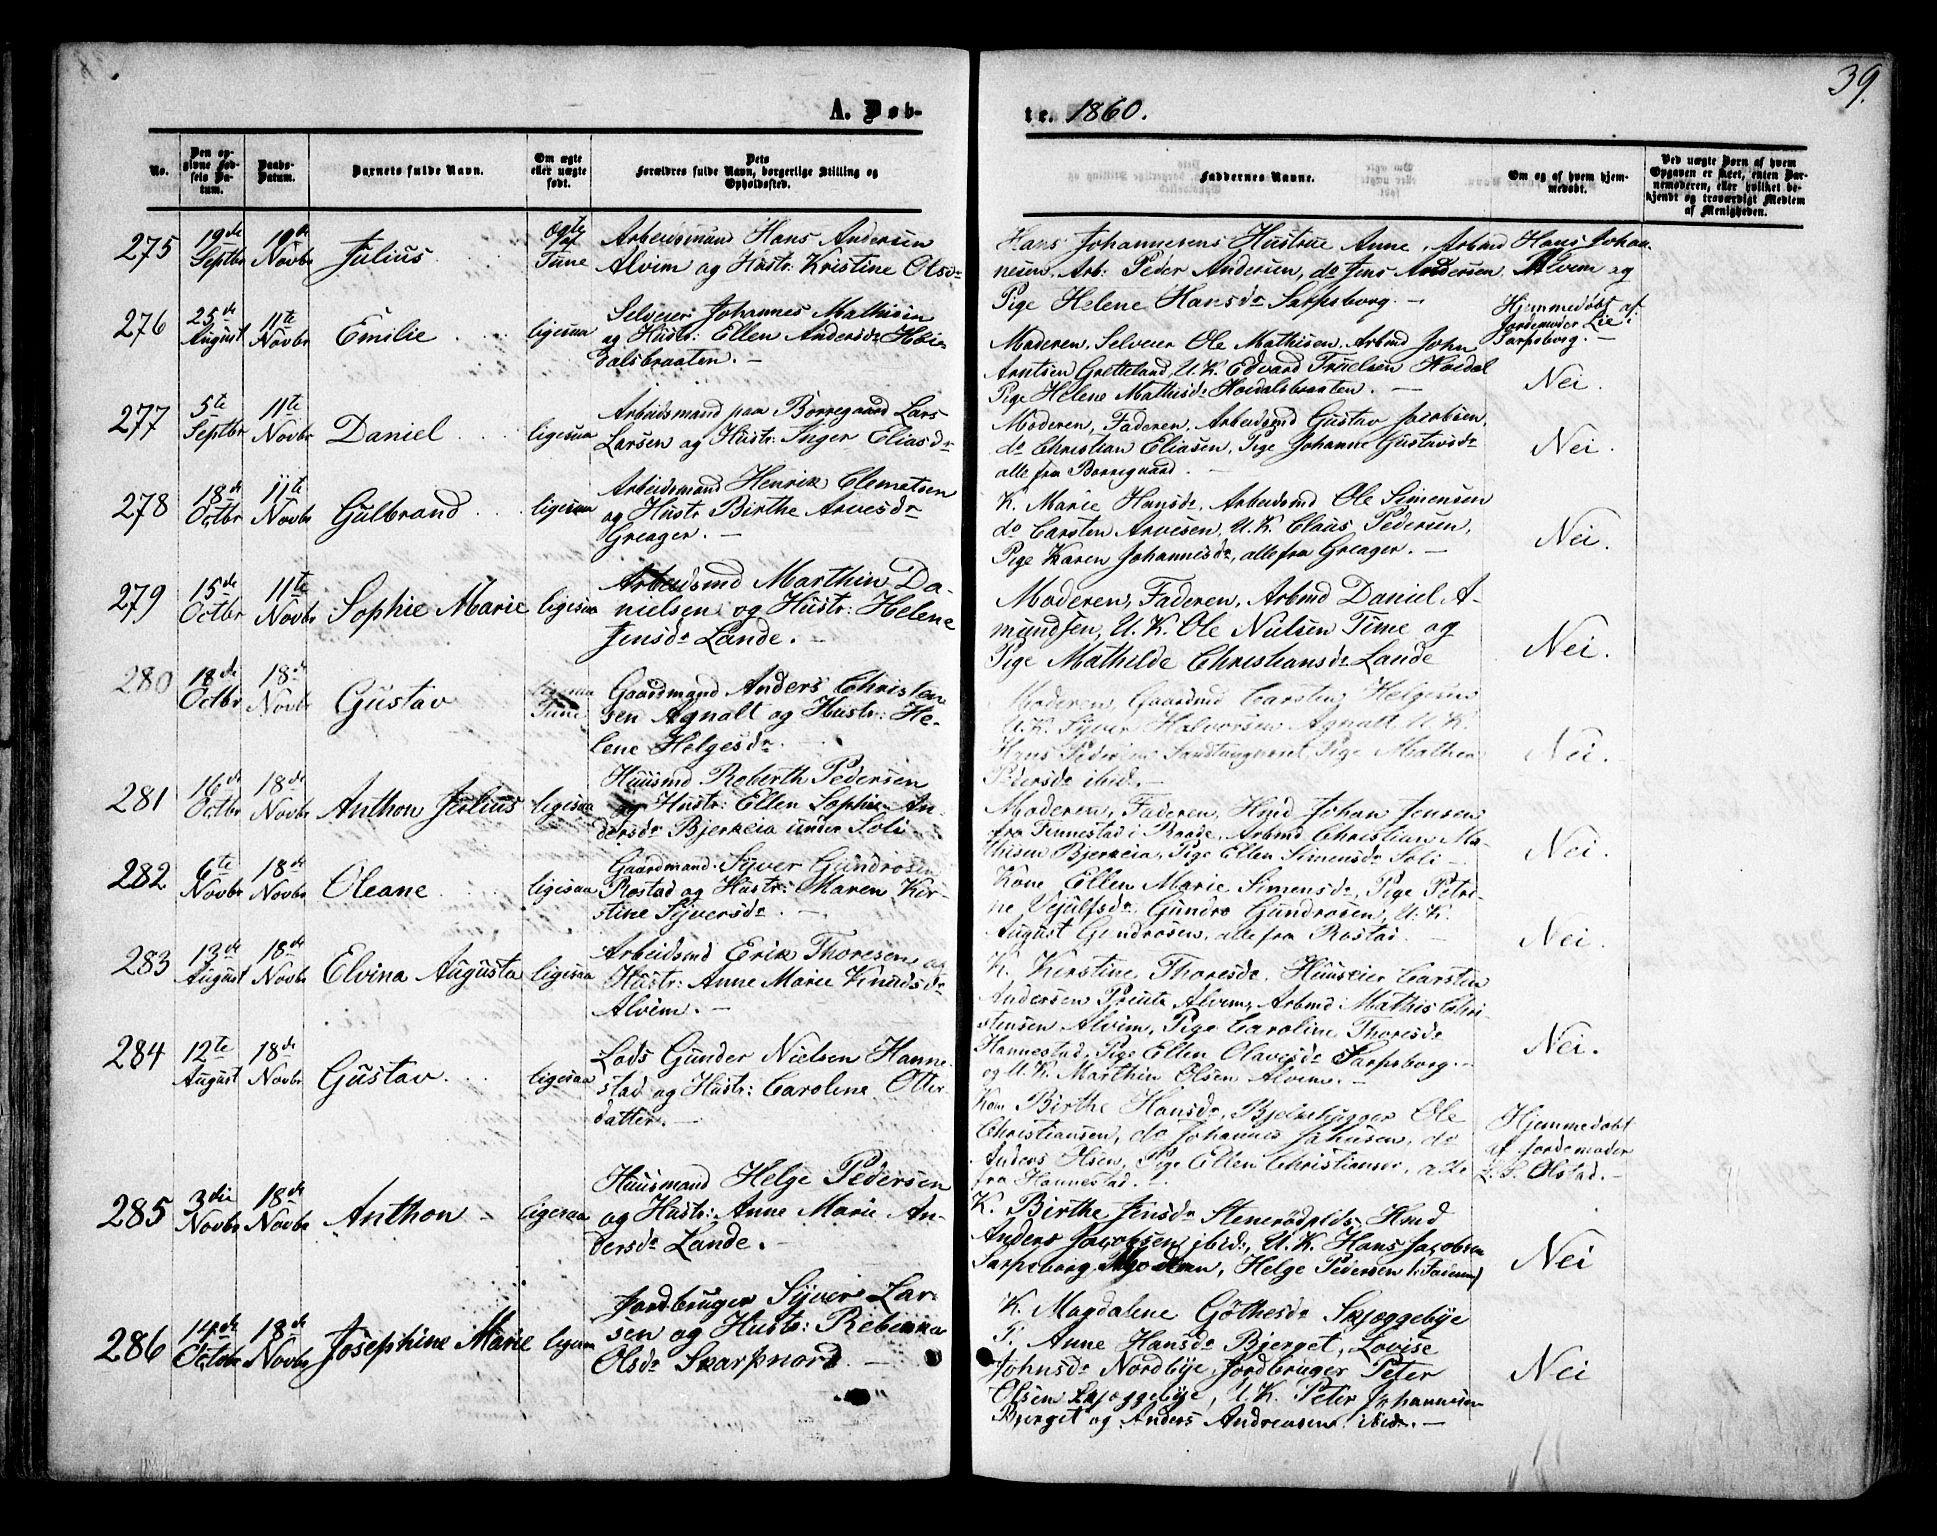 39.
A. Døb-
te. 1860.
No.
Den op-
givne Fød-
sels Da-
tum.
Daabs-
Datum.
Barnets fulde Navn.
Om ægte
eller uægte
født.
Dets
Forældres fulde Navn, borgerlige Stilling og
Opholdssted.
Faddernes Navne.
Om og af hvem hjem-
medøbt.
Ved uægte Børn af hvem
Opgaven er skeet, enten Bar-
nemoderen, eller hvilket be-
kjendt og troværdigt Medlem
af Menigheden.
275
19de
Septbr
Novbr
Julius
Ægte
af
Tune
Arbeidsmand Hans Andersen
Alvim og Hustr: Kristine Olsdr
Hans Johannesens Hustrue Anne, Arbmd Hans Johan-
nesen, Arb: Peder Andersen, do Jens Andersen Alvim og
Pige Helene Hansdr Sarpsborg. —
276
25de
August
11te
Novbr
Emilie
ligesaa
Selveier Johannes Mathisen
og Hustr: Ellen Andersdr Høi-
dalsbraaten. —
Moderen, Selveier Ole Mathisen, Arbmd John
Arntsen Gretteland, U.K. Edvard Truelsen Høidal
Pige Helene Mathisdr Høidalsbraaten. —
Hjemmedøbt af
Jordemoder Lie
Sarpsborg. —
Nei.
277
5te
Septbr
11te
Novbr
Daniel
ligesaa
Arbeidsmand paa Borregaard Lars
Larsen og Hustr: Inger Eliasdr
Moderen, Faderen, Arbeidsmd Gustav Jacobsen,
do Christian Eliasen, Pige Johanne Gustavsdr
alle fra Borregaard. —
Nei.
278
18de
Octbr
11te
Novbr
Gulbrand
ligesaa
Arbeidsmand Henrik Clemetsen
og Hustr Birthe Arvesdr
Greager. —
K. Marie Hansdr, Arbeidsmd Ole Simensen
do Carsten Arvesen, U.K. Claus Pedersen,
Pige Karen Johannisdr, alle fra Greager. —
Nei.
279
15de
Octbr
11te
Novbr
Sophie Marie
ligesaa
Arbeidsmd Marthin Da-
nielsen og Hustr: Helene
Jensdr Lande. —
Moderen, Faderen, Arbmd Daniel A-
mundsen, U.K. Ole Nielsen Tune og
Pige Mathilde Christiansdr Lande
Nei.
280
18de
Octbr
18de
Novbr
Gustav
ligesaa
Tune
Gaardmand Anders Christen
sen Agnalt og Hustr: He-
lene Helgesdr
Moderen, Gaardmd Carsten Helgesen
U.K. Syver Halvorsen Agnalt U.K.
Hans Pedersen Sandtangen, Pige Mathea
Pedersdr ibid. —
Nei.
281
16de
Octbr
18de
Novbr
Anthon Julius
ligesaa
Huusmd Roberth Pedersen
og Hustr: Ellen Sophie An-
dersdr Bjerkeia under Soli
Moderen, Faderen, Hmd Johan Jensen
fra Tennestad i Raade, Arbmd Christian Ma-
thisen Bjerkeia, Pige Ellen Simensdr Soli —
Nei.
282
6te
Novbr
18de
Novbr
Oleane
ligesaa
Gaardmand Syver Gundrosen
Rostad og Hustr: Maren Kir-
stine Syversdr —
Kone Ellen Marie Simensdr, Pige Petri-
ne Vejulfsdr, Gundro Gundrosen, U.K.
August Gundrosen, alle fra Rostad. —
Nei.
283
13de
August
18de
Novbr
Elvina Augusta
ligesaa
Arbeidsmd Erik Thoresen og
Hustr: Anne Marie Knudsdr
Alvim. —
K. Kirstine Thoresdr. Huuseier Carsten
Andersen Printe Alvim, Arbmd: Mathis Chri-
stensen Alvim, Pige Caroline Thoresdr
Hannestad, Pige Ellen Olavesdr Sarpsborg. —
og U.K. Marthin Olsen Alvim. —
Nei.
284
12te
August
18de
Novbr
Gustav
ligesaa
Lods Gunder Nielsen Hanne-
stad og Hustr: Caroline Otter
datter. —
Kon Birthe Hansdr, Ole
Christiansen, do Johannes, do
Anders, Pige Ellen, alle
fra Hannestad. —
Hjemmedøbt
af Jordemoder
Olstad. —
285
3die
Novbr
18de
Novbr
Anthon
ligesaa
Huusmand Helge Pedersen
og Hustr: Anne Marie An-
dersdr Lande. —
K. Birthe Jensdr Stenerødplds, Hmd
Anders Jacobsen ibid:, U.K. Hans Jacobsen
Sarpsborg, Moderen, Helge Pedersen (: Faderen)
Nei
286
14de
Octbr
18de
Novbr
Josephine Marie
ligesaa
Jordbruger Syver Lar-
sen og Hustr: Rebekka
Olsdr Skarpnord. —
K. Magdalene Gøthesdr Skjøggebye
P. Anne Hansdr Bjerget, Lovise
Johnsdr Nordbye, Jordbruger Peter
Olsen Skjøggebye, U.K. Peter Johannesen
Bjerget og Anders Andreasen ibid. —
Nei